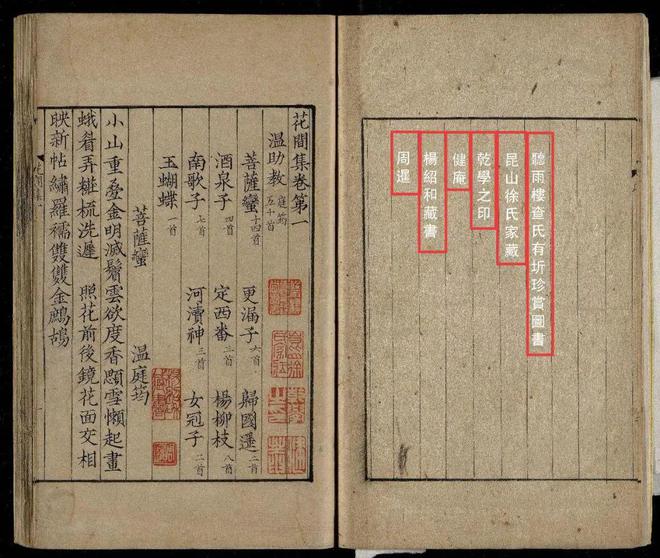 聽雨樓查氏有圻珍賞圖書
昆山徐氏家藏
乾學之印
健庵
楊紹和藏書
周暹
花間集卷第一
溫助教 庭筠 五十首
菩薩蠻 十四首 更漏子 六首 歸國遥 二首
酒泉子 四首 定西番 三首 楊柳枝 八首
南歌子 七首 河瀆神 三首 女冠子 二首
玉蝴蝶 一首
菩薩蠻 温庭筠
小山重疊金明滅鬢雲欲度香顋雪懶起畫
蛾眉弄粧梳洗遲 照花前後鏡花面交相
映新帖繡羅襦雙雙金鷓鴣